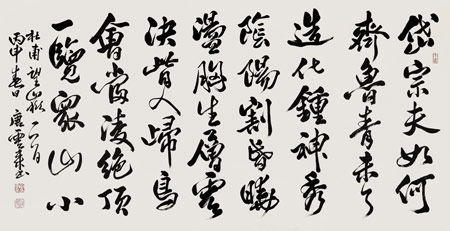 岱宗夫如何
齊魯青未了
造化鍾神秀
陰陽割昏曉
盪胸生層雲
決眥入歸鳥
會當凌絕頂
一覽眾山小
杜甫望嶽一首
丙申春日唐雲來書